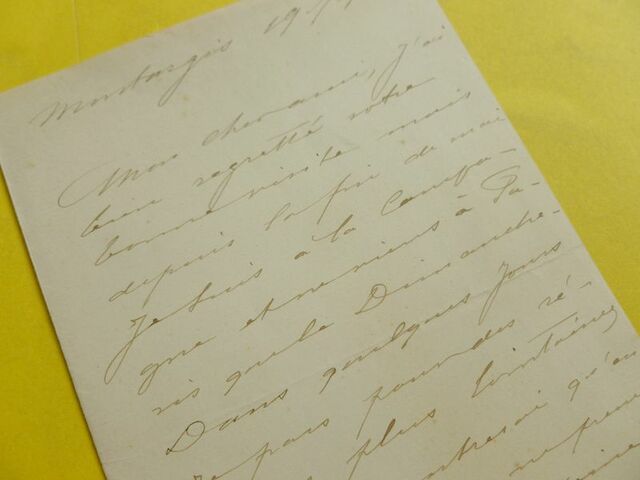 Montargis 19
Mon cher ami, j'ai
bien regretté votre
bonne visite mais
depuis la fin de mai
je suis à la campa-
gne et ne viens à Pa-
ris que le Dimanche.
Dans quelques jours
je pars pour des ré-
plus lointaines
qu'au